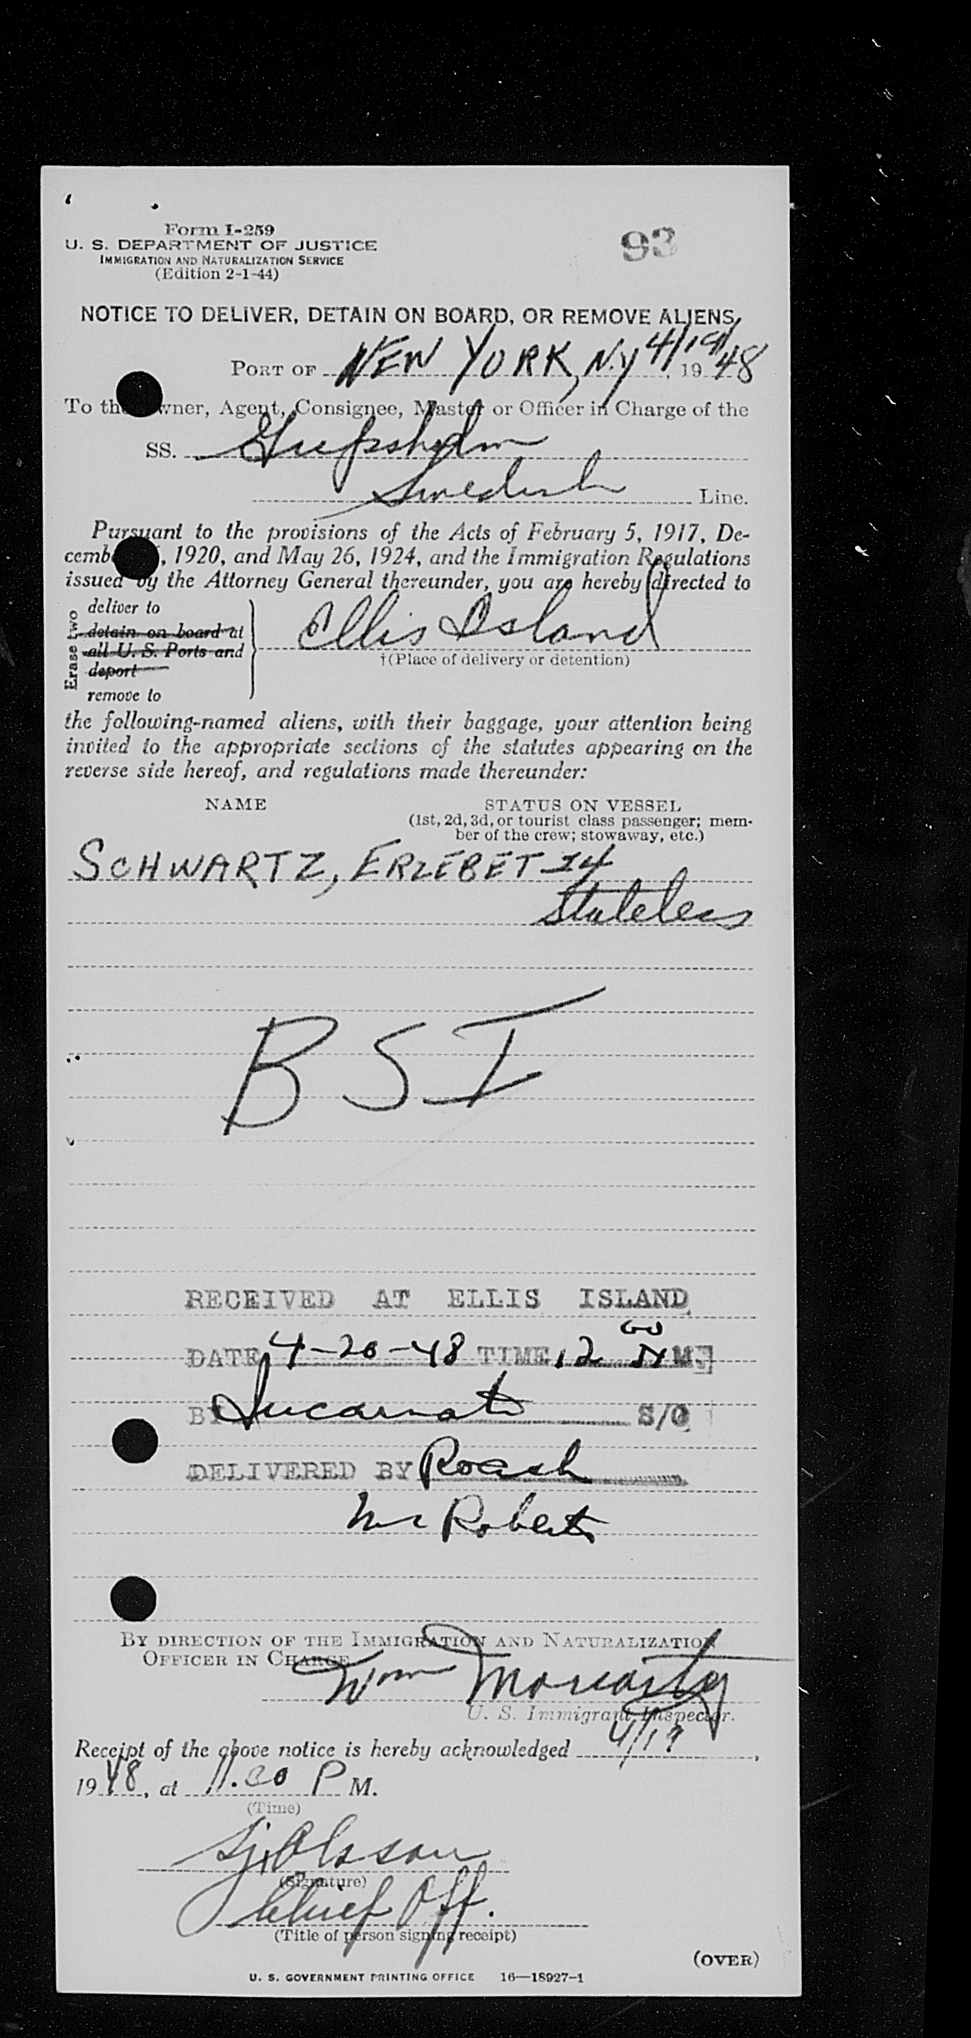 Form I-259
U. S. DEPARTMENT OF JUSTICE
IMMIGRATION AND NATURALIZATION SERVICE
(Edition 2-1-44)
93
NOTICE TO DELIVER, DETAIN ON BOARD, OR REMOVE ALIENS
PORT OF NEW YORK, N.Y 4/19/, 1948
To the Owner, Agent, Consignee, Master or Officer in Charge of the
SS. Gripsholm
Swedish Line.
Pursuant to the provisions of the Acts of February 5, 1917, De-
cemb , 1920, and May 26, 1924, and the Immigration Regulations
issued by the Attorney General thereunder, you are hereby directed to
Erase two
deliver to
detain on board at
all U. S. Ports and
deport
remove to
Ellis Island
†(Place of delivery or detention)
the following-named aliens, with their baggage, your attention being
invited to the appropriate sections of the statutes appearing on the
reverse side hereof, and regulations made thereunder:
NAME STATUS ON VESSEL
(1st, 2d, 3d, or tourist class passenger; mem-
ber of the crew; stowaway, etc.)
SCHWARTZ, ERZEBET I4
Stateless
BSI
RECEIVED AT ELLIS ISLAND
DATE 4-20-48 TIME 12 00 N M.
BY S/O
DELIVERED BY Roach
McRoberts
BY DIRECTION OF THE IMMIGRATION AND NATURALIZATION
OFFICER IN CHARGE
Wm Moriarty
U. S. Immigrant Inspector.
Receipt of the above notice is hereby acknowledged 4/19,
1948, at 11.00 P M.
(Time)
Olsson
(Signature)
Chief Off.
(Title of person signing receipt)
(OVER)
U. S. GOVERNMENT PRINTING OFFICE 16—18927-1